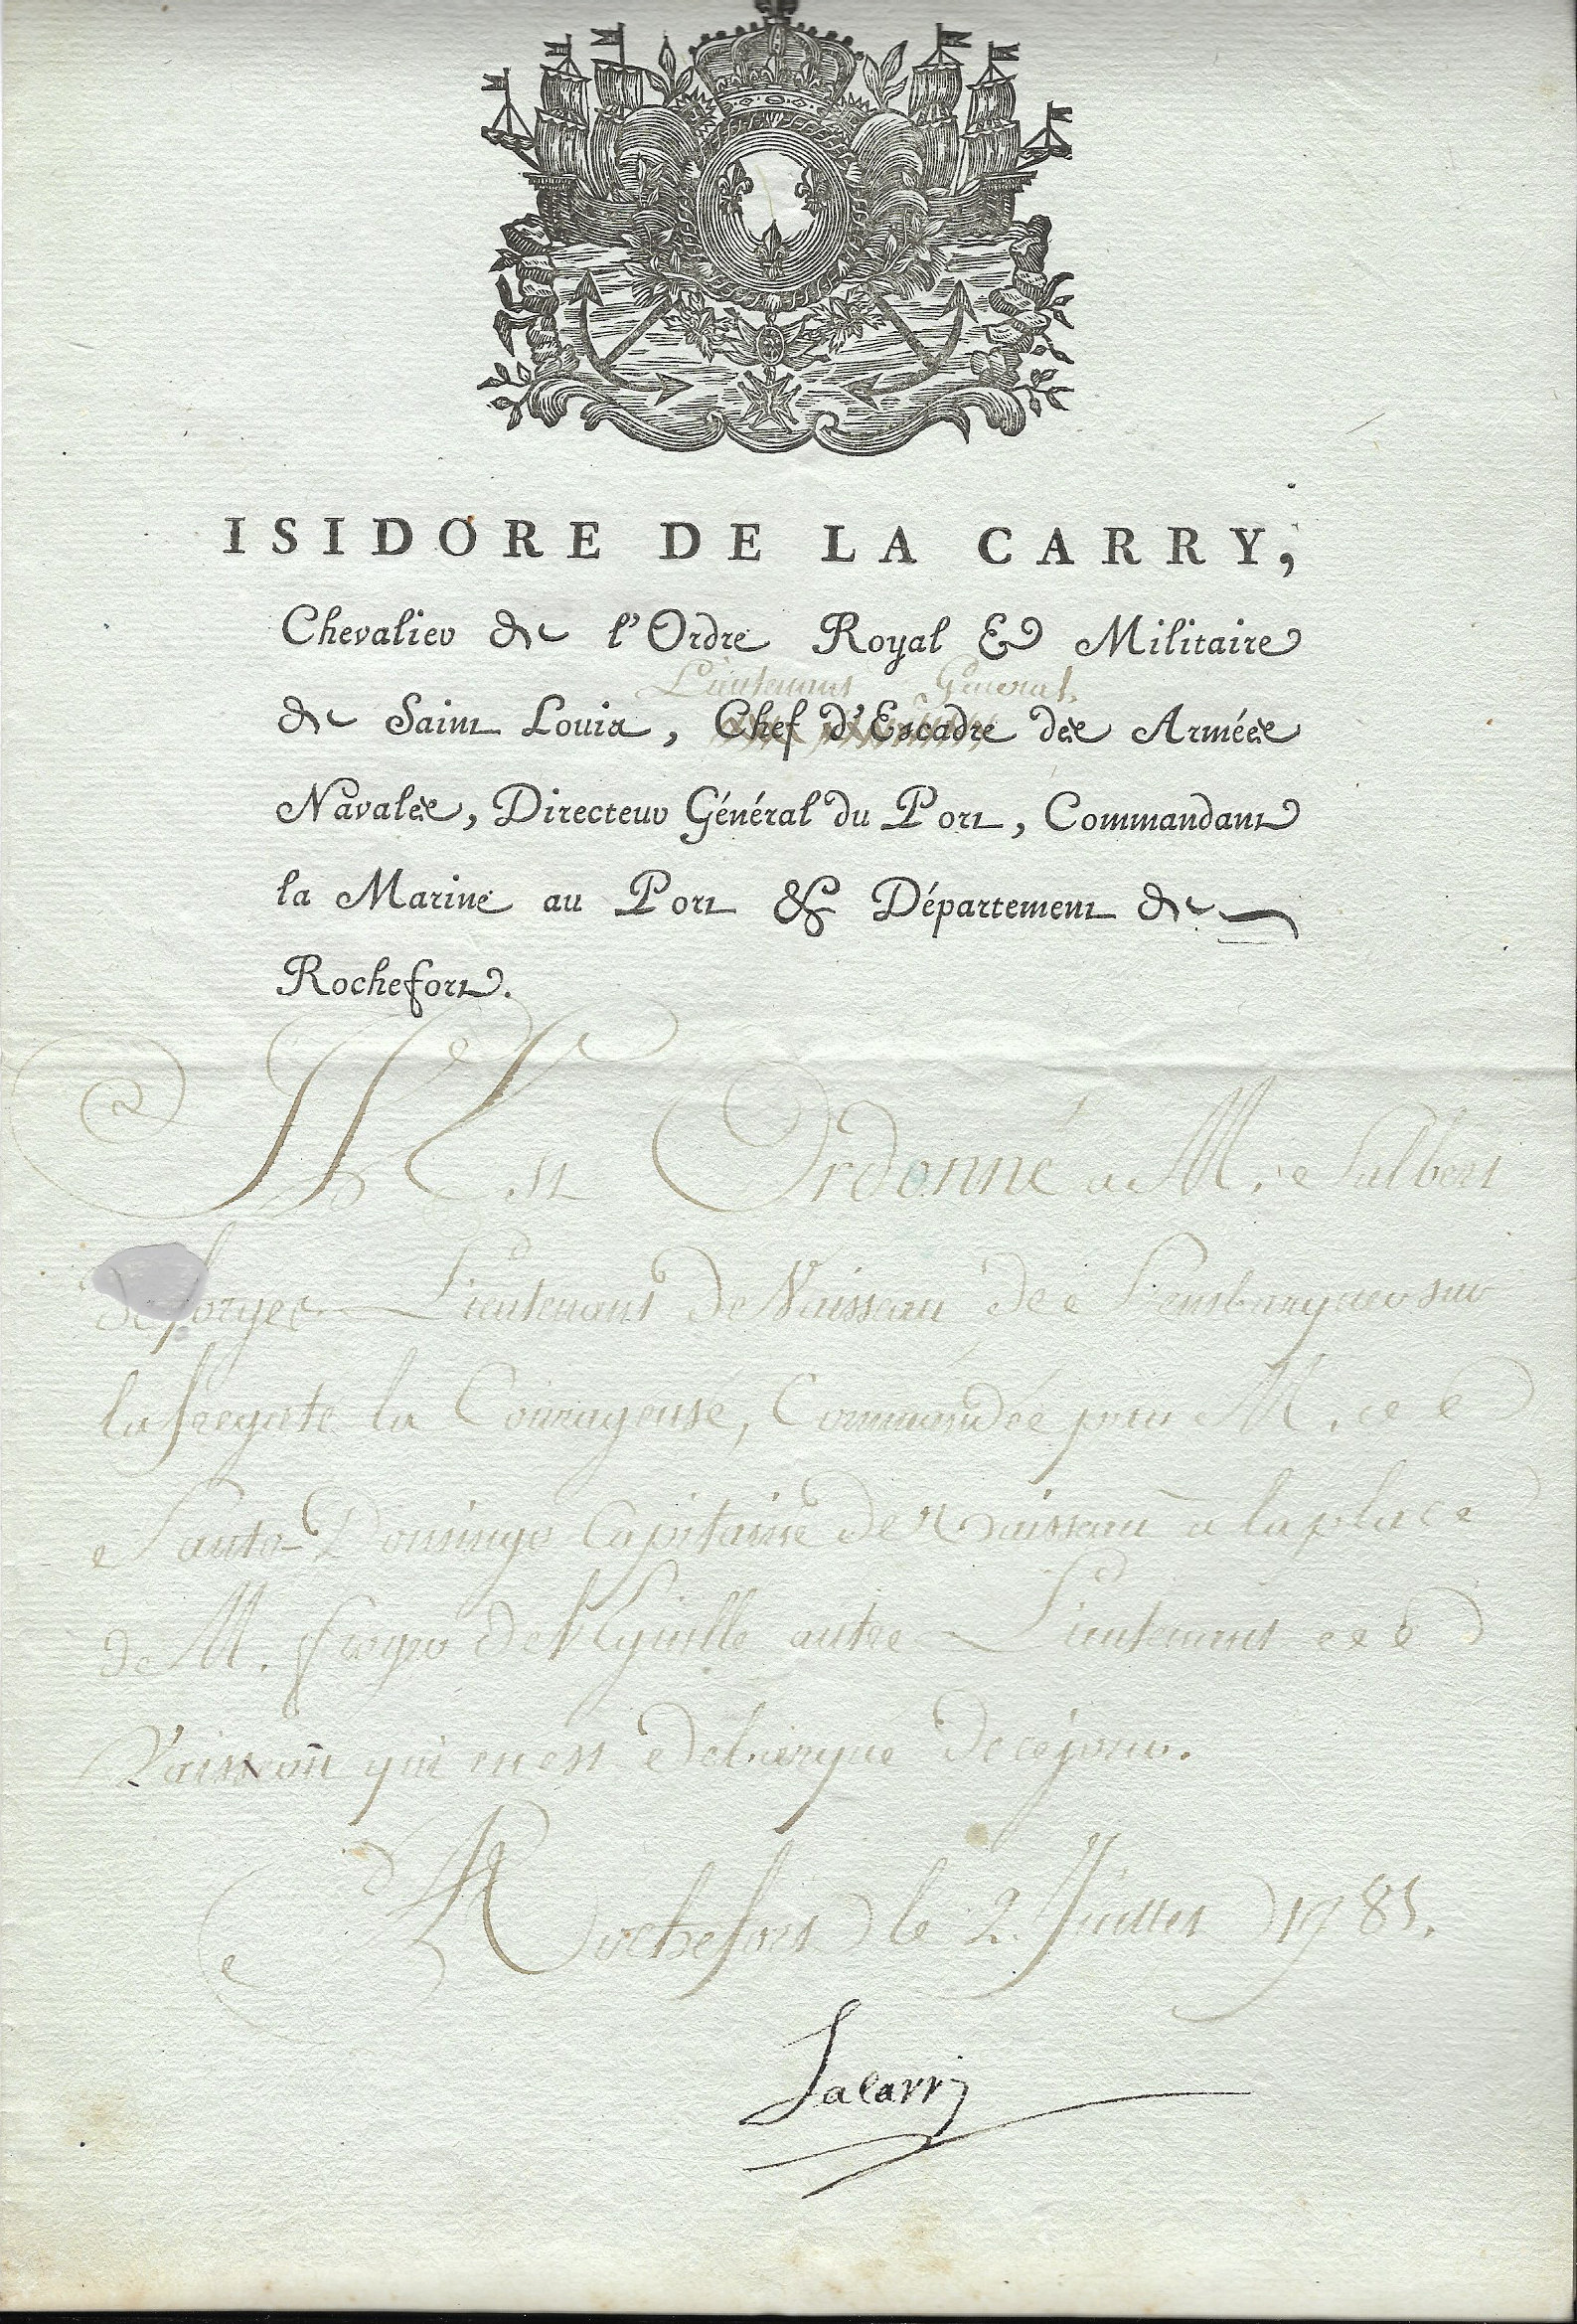 ISIDORE DE LA CARRY,
Chevalier de l'Ordre Royal & Militaire
Lieutenant Général
de Saint Louis, Chef d'Escadre des Armées
Navales, Directeur Général du Port, Commandant
la Marine au Port & Département de
Rochefort.
Il Est Ordonné a M. Salbert
deforges Lieutenant de Vaisseau de S'embarquer sur
la fregate la Courageuse, Commandée par M. de
Santo-Domingo Capitaine de Vaisseau à la place
de M. froger de l'Eguille autre Lieutenant de
Vaisseau qui en est debarqué de ce jour.
Rochefort le 2. Juillet 1785.
Lacarry